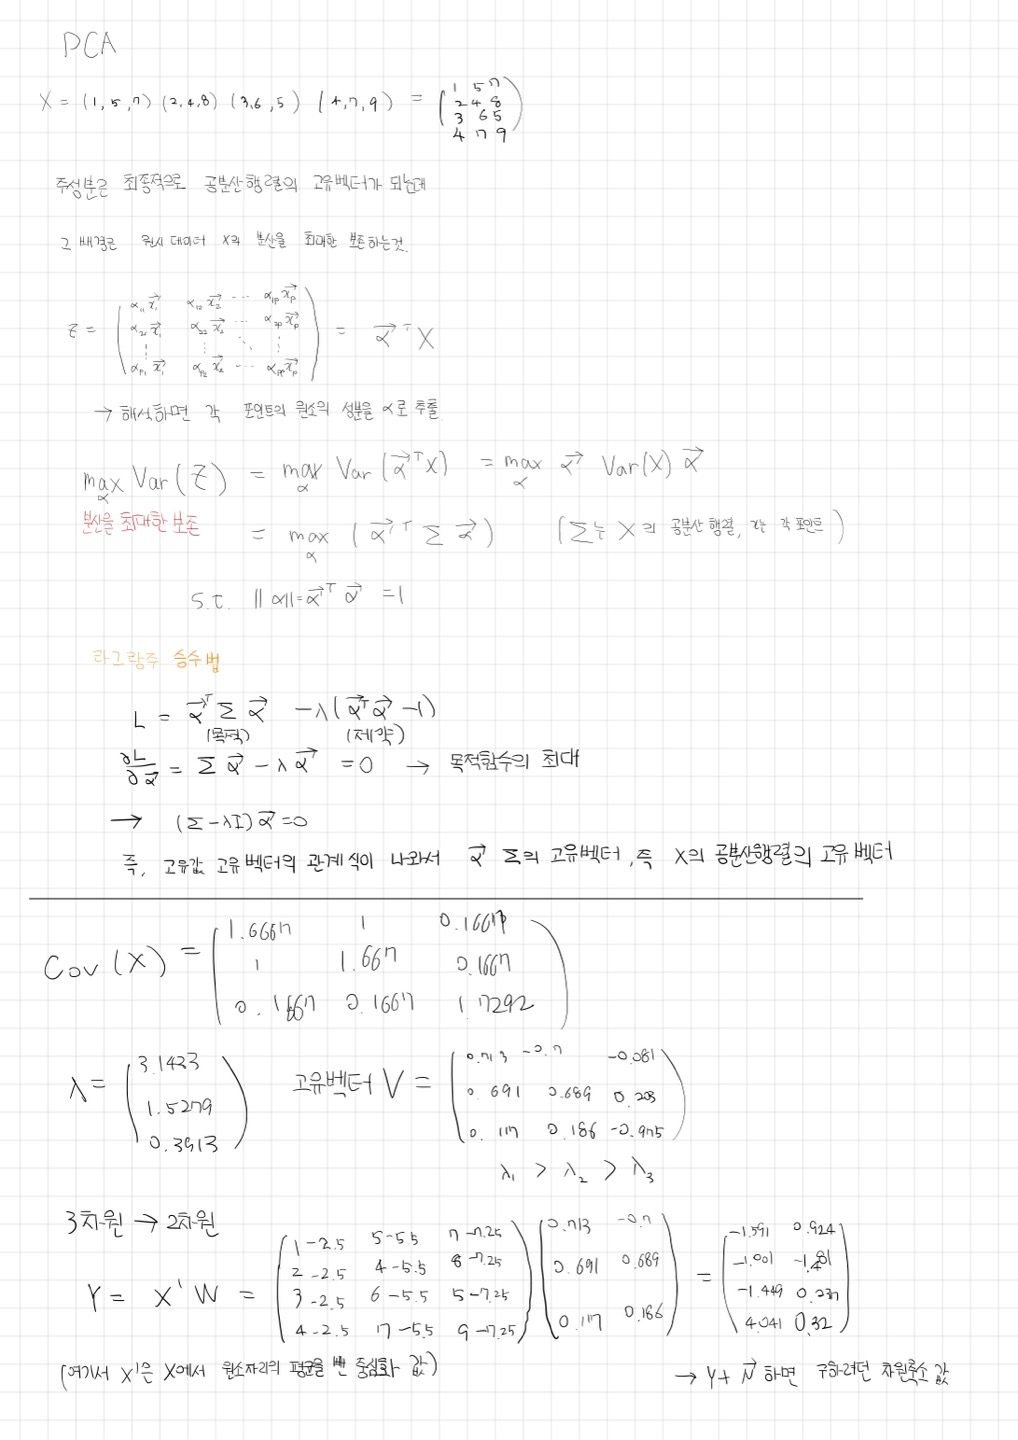 PCA
X = (1,5,7) (2,4,8) (3,6,5) (4,7,9) = ( 1 5 7
2 4 8
3 6 5
4 7 9 )
주성분은 최종적으로 공분산행렬의 고유벡터가 되는데
그 배경은 원시 데이터 X의 분산을 최대한 보존하는것.
Z = ( α₁₁x⃗₁ α₁₂x⃗₂ ⋯ α₁ₚx⃗ₚ
α₂₁x⃗₁ α₂₂x⃗₂ ⋯ α₂ₚx⃗ₚ
⋮ ⋮ ⋱ ⋮
αₚ₁x⃗₁ αₚ₂x⃗₂ ⋯ αₚₚx⃗ₚ ) = α⃗ᵀX
→ 해석하면 각 포인트의 원소의 성분을 α로 추출.
max Var(Z) = max Var(α⃗ᵀX) = max α⃗ Var(X) α⃗
α α α
분산을 최대한 보존 = max (α⃗ᵀ Σ α⃗) (Σ는 X의 공분산 행렬, x는 각 포인트)
α
s.t. ||α||=α⃗ᵀα⃗ =1
라그랑주 승수법
L = α⃗ᵀ Σ α⃗ -λ(α⃗ᵀα⃗ -1)
(목적) (제약)
∂L/∂α⃗ = Σα⃗ - λα⃗ =0 → 목적함수의 최대
→ (Σ-λI)α⃗ =0
즉, 고유값 고유벡터의 관계식이 나와서 α⃗ Σ의 고유벡터, 즉 X의 공분산행렬의 고유벡터
Cov(X) = ( 1.6667 1 0.1667
1 1.667 0.1667
0.1667 0.1667 1.7292 )
λ = ( 3.1423
1.5279
0.3913 )
고유벡터 V = ( 0.713 -0.7 -0.081
0.691 0.689 0.203
0.117 0.186 -0.975 )
λ₁ > λ₂ > λ₃
3차원 → 2차원
Y = X'W = ( 1-2.5 5-5.5 7-7.25
2-2.5 4-5.5 8-7.25
3-2.5 6-5.5 5-7.25
4-2.5 7-5.5 9-7.25 ) ( 0.713 -0.7
0.691 0.689
0.117 0.186 ) = ( -1.591 0.924
-1.001
-1.449 0.237
4.041 0.32 )
(여기서 X'은 X에서 원소자리의 평균을 뺀 중심화 값)
→ Y+ 하면 구하려던 차원축소 값